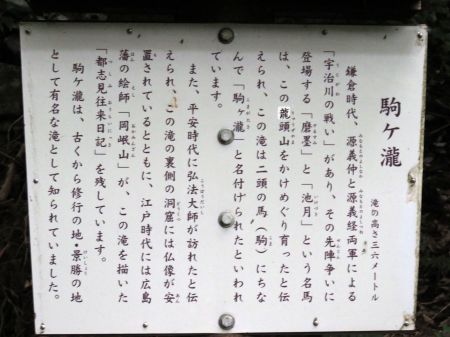 駒ケ瀧
滝の高さ三六メートル
鎌倉時代、源義仲と源義経両軍による
「宇治川の戦い」があり、その先陣争いに
登場する「磨墨」と「池月」という名馬
は、この龍頭山をかけめぐり育ったと伝
えられ、この滝は二頭の馬(駒)にちな
んで「駒ケ瀧」と名付けられたといわれ
ています。
また、平安時代に弘法大師が訪れたと伝
えられ、この滝の裏側の洞窟には仏像が安
置されているとともに、江戸時代には広島
藩の絵師「岡岷山」が、この滝を描いた
「都志見往来日記」を残しています。
駒ケ滝は、古くから修行の地・景勝の地
として有名な滝として知られていました。